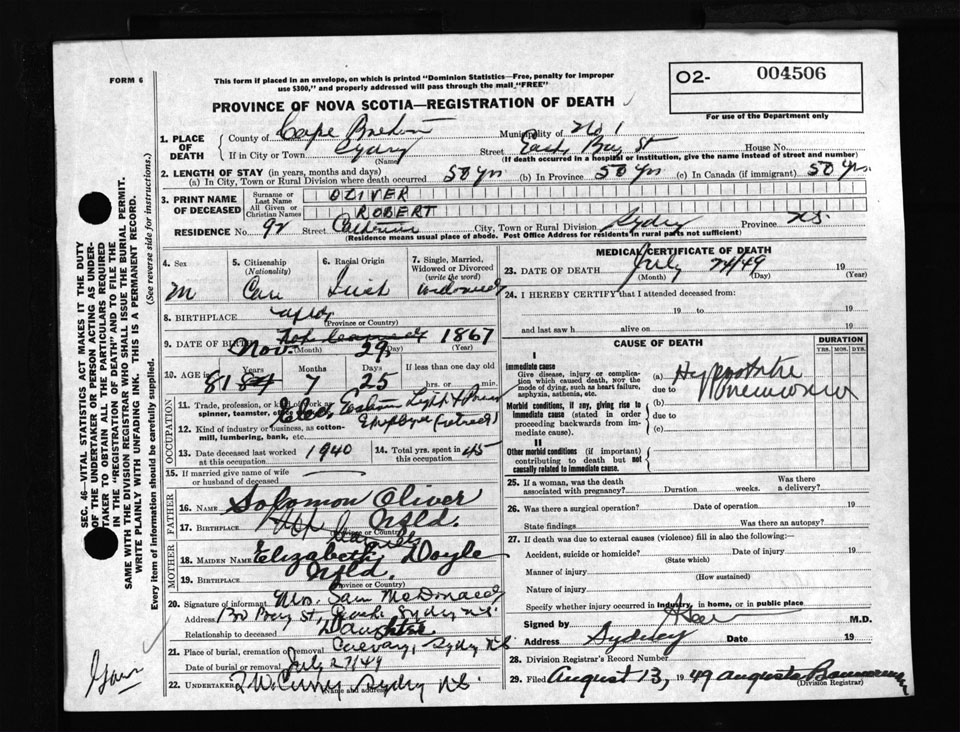 FORM 6
This form if placed in an envelope, on which is printed "Dominion Statistics—Free, penalty for improper
use $300," and properly addressed will pass through the mail "FREE"
O2- 004506
For use of the Department only
PROVINCE OF NOVA SCOTIA—REGISTRATION OF DEATH
1. PLACE OF DEATH
County of Cape Breton Municipality of No 1
If in City or Town Sydney Street East Bay St House No.
(Name) (If death occurred in a hospital or institution, give the name instead of street and number)
2. LENGTH OF STAY (in years, months and days)
(a) In City, Town or Rural Division where death occurred 50 yrs (b) In Province 50 yrs (c) In Canada (if immigrant) 50 yrs.
3. PRINT NAME OF DECEASED
Surname or Last Name OLIVER
All Given or Christian Names ROBERT
RESIDENCE No. 92 Street Catherine City, Town or Rural Division Sydney Province N.S.
(Residence means usual place of abode. Post Office Address for residents in rural parts not sufficient)
4. Sex M
5. Citizenship (Nationality) Can
6. Racial Origin Irish
7. Single, Married, Widowed or Divorced (write the word) widowed
8. BIRTHPLACE Nfld
(Province or Country)
9. DATE OF BIRTH Nov. 29 1867
(Month) (Day) (Year)
10. AGE in Years Months Days If less than one day
81 84 7 25 hrs. or min.
OCCUPATION
11. Trade, profession, or kind of work as spinner, teamster, office Eastern Light & Power
12. Kind of industry or business, as cotton-mill, lumbering, bank, etc. Employee (retired)
13. Date deceased last worked at this occupation 1940
14. Total yrs. spent in this occupation 45
15. If married give name of wife or husband of deceased
FATHER
16. NAME Solomon Oliver
17. BIRTHPLACE Nfld.
(Province or Country)
MOTHER
18. MAIDEN NAME Elizabeth Doyle
19. BIRTHPLACE Nfld.
(Province or Country)
20. Signature of informant Mrs. Sam McDonald
Address St, Sydney N.S.
Relationship to deceased Daughter
21. Place of burial, cremation or removal Calvary, Sydney N.S
Date of burial or removal July 27/49
22. UNDERTAKER Sydney N.S.
(Name and address)
MEDICAL CERTIFICATE OF DEATH
23. DATE OF DEATH July 24/49 19
(Month) (Day) (Year)
24. I HEREBY CERTIFY that I attended deceased from:
19 to 19
and last saw h alive on 19
CAUSE OF DEATH
DURATION
YRS. MOS. DYS.
I
Immediate cause
Give disease, injury or complication which caused death, NOT the mode of dying, such as heart failure, asphyxia, asthenia, etc.
(a) Hypostatic
due to Pneumonia
(b)
Morbid conditions, if any, giving rise to immediate cause (stated in order proceeding backwards from immediate cause).
due to
(c)
II
Other morbid conditions (if important) contributing to death but not causally related to immediate cause.
25. If a woman, was the death associated with pregnancy? Duration weeks. Was there a delivery?
26. Was there a surgical operation? Date of operation 19
State findings Was there an autopsy?
27. If death was due to external causes (violence) fill in also the following:—
Accident, suicide or homicide? Date of injury 19
(State which)
Manner of injury
(How sustained)
Nature of injury
Specify whether injury occurred in industry, in home, or in public place
Signed by M.D.
Address Sydney Date 19
28. Division Registrar's Record Number
29. Filed August 13, 1949
(Division Registrar)
SEC. 46—VITAL STATISTICS ACT MAKES IT THE DUTY
OF THE UNDERTAKER OR PERSON ACTING AS UNDERTAKER TO OBTAIN ALL THE PARTICULARS REQUIRED
IN THE "REGISTRATION OF DEATH" AND TO FILE THE
SAME WITH THE DIVISION REGISTRAR WHO SHALL ISSUE THE BURIAL PERMIT.
WRITE PLAINLY WITH UNFADING INK. THIS IS A PERMANENT RECORD.
Every item of information should be carefully supplied. (See reverse side for instructions.)